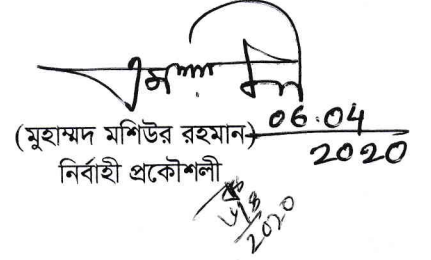 (মুহাম্মদ মশিউর রহমান) 06.04
2020
নির্বাহী প্রকৌশলী
2020